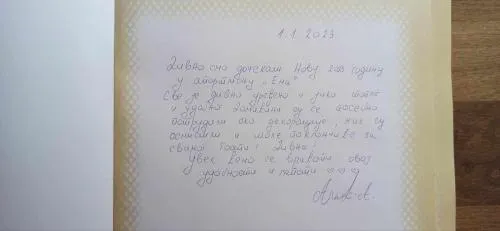 1.1.2023
Дивно смо дочекали Нову 2023 годину
у апартману „Ени“
Све је дивно уређено и јако топло
и удобно. Домаћини су се посебно
потрудили око декорације, чак су
оставили и мале поклончиће за
сваког госта! Дивно!
Увек ћемо се враћати овој
удобности и лепоти